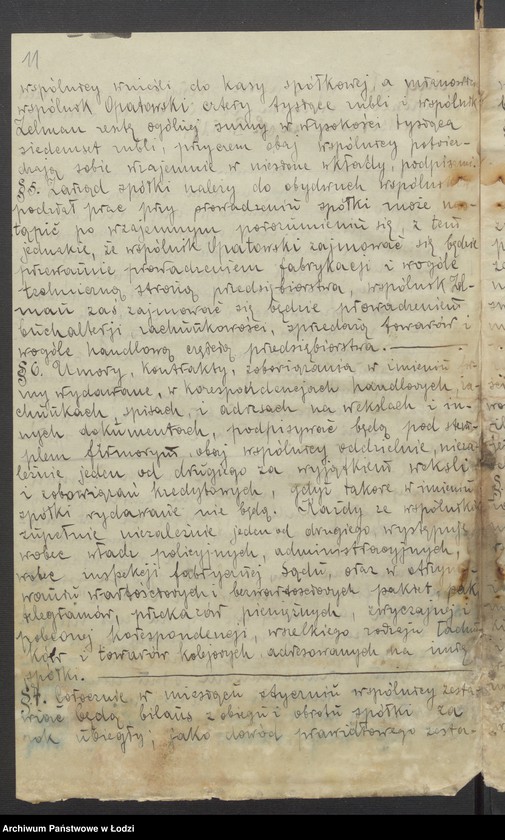 11
wspólnicy wnieśli do kasy spółkowej, a mianowi-
wspólnik Opatowski cztery tysiące rubli i wspólnik
Zelman resztę ogólnej sumy w wysokości tysiąca
siedemset rubli, przyczem obaj wspólnicy potwier-
dzają sobie wzajemnie wniesione wkłady, podpisami
§5. Zarząd spółki należy do obydwuch wspólników
podział prac przy prowadzeniu spółki może na-
stąpić po wzajemnym porozumieniu się, z tem
jednakże, że wspólnik Opatowski zajmować się będzie
przeważnie prowadzeniem fabrykacji i wogóle
techniczną stroną przedsiębiorstwa, wspólnik Zel-
man zaś zajmować się będzie prowadzeniem
buchalterji rachunkowości, sprzedażą towarów i
wogóle handlową częścią przedsiębiorstwa.
§6. Umowy, kontrakty, zobowiązania w imieniu
my wydawane, w korespondencjach handlowych, ra-
chunkach, spisach, i adresach na wekslach i in-
nych dokumentach, podpisywać będą pod stem-
plem firmowym obaj wspólnicy oddzielnie, nieza-
leżnie jeden od drugiego za wyjątkiem weksli
i zobowiązań kredytowych, gdyż takowe w imieniu
spółki wydawane nie będą. Każdy ze wspólników
zupełnie niezależnie jeden od drugiego występuje
wobec władz policyjnych, administracyjnych,
wobec inspekcji fabrycznej, Sądu, oraz w otrzy-
waniu wartościowych i bezwartościowych pakiet,
telegramów, przekazów pieniężnych, zwyczajnej i
poleconej korespondencji, wszelkiego rodzaju ładun-
ków i towarów kolejowych adresowanych na imię
spółki.
§7. Corocznie w miesiącu styczniu wspólnicy zesta-
wiać będą bilans z obiegu i obrotu spółki za
rok ubiegły; jako dowód prawidłowego zesta-
Archiwum Państwowe w Łodzi